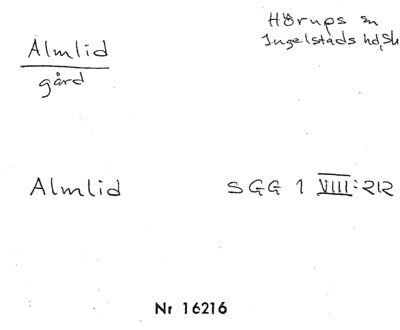 Hörups sn
Ingelstads hd, Sk
Almlid
gård
Almlid SGG 1 VIII:212
Nr 16216